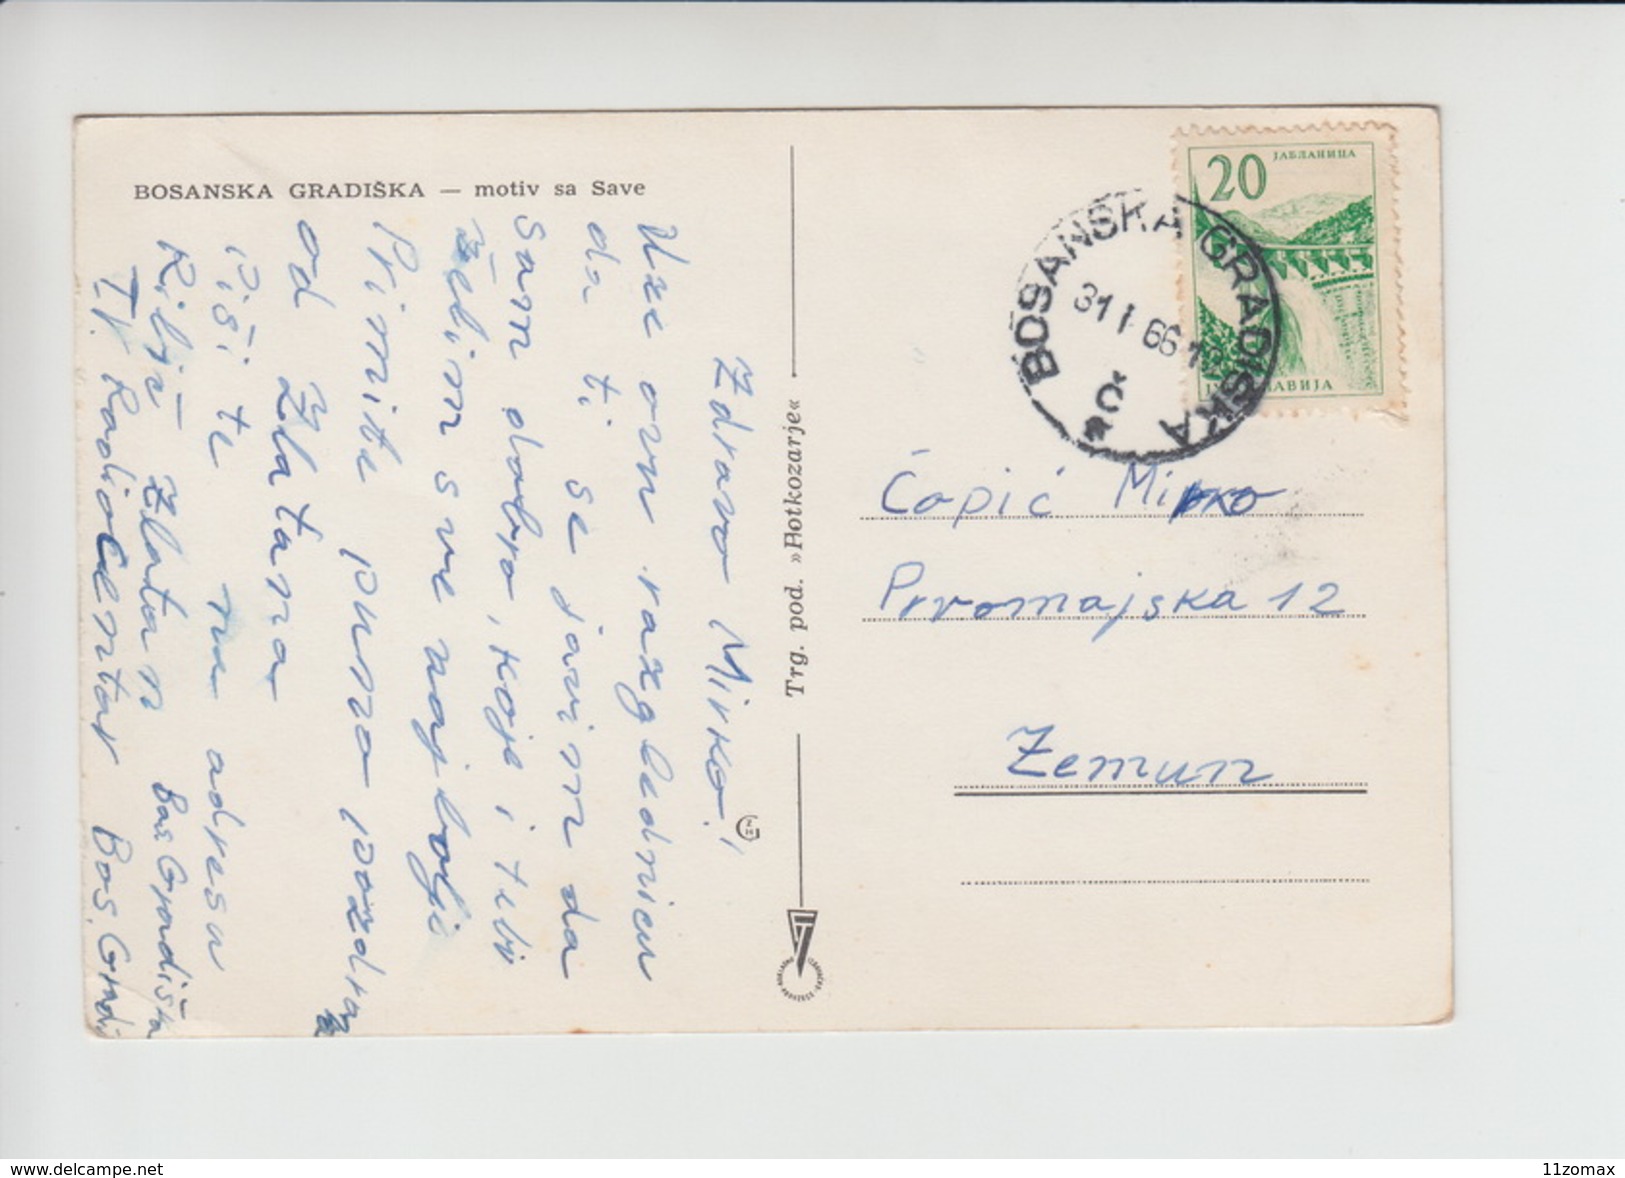 BOSANSKA GRADIŠKA — motiv sa Save
Zdravo Mirko!
Uz ovu razglednicu
da ti se javim da
sam dobro, koje i tebi
želim sve najbolje
Primite puno pozdrava
od Zlatana
Pišite na adresu
Zlatan Bos Gradiška
T.V. Radiocentar Bos. Gradi
Trg. pod. »Potkozarje«
20
ЈАБЛАНИЦА
BOSANSKA GRADIŠKA
31 I 66
Č
Ćopić Mirko
Prvomajska 12
Zemun
www.delcampe.net
11zomax